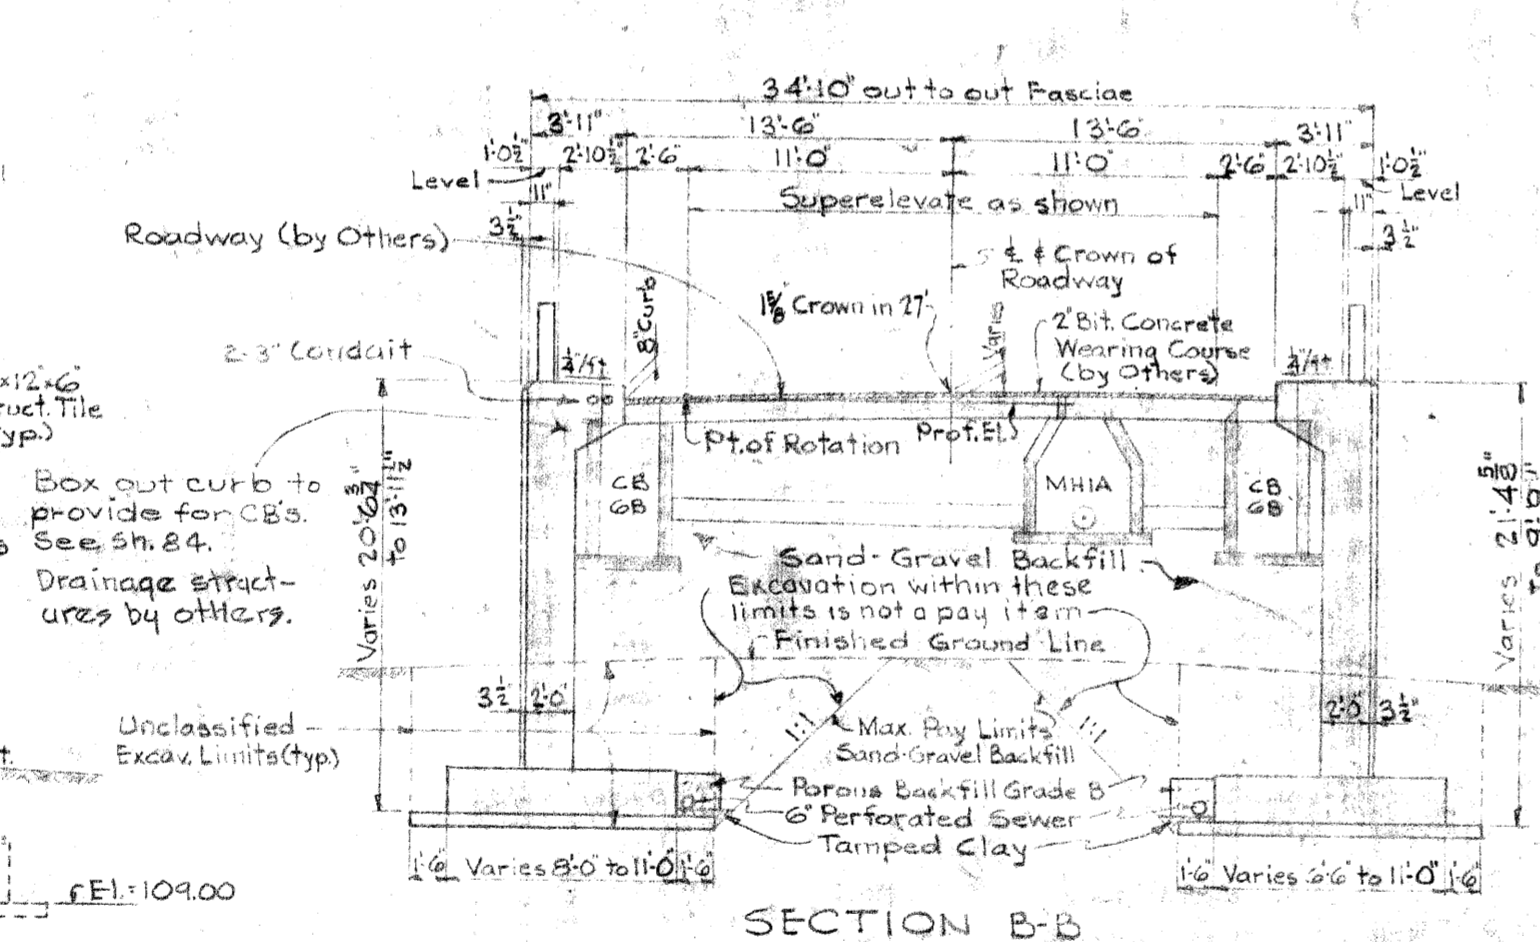 34'-10" out to out Fasciae
3'-11" 13'-6" 13'-6" 3'-11"
1'-0½" 2'-10½" 2'-6" 11'-0" 11'-0" 2'-6" 2'-10½" 1'-0½"
Level
11"
Superelevate as shown
11"
Level
3½"
3½"
Roadway (by Others)
℄ & Crown of
Roadway
1⅝" Crown in 27'
8" Curb
Varies
2" Bit. Concrete
Wearing Course
(by Others)
2-3" Conduit
¼"/ft
¼"/ft
x12"x6"
ruct. Tile
yp.)
Pt. of Rotation
Prof. El.
Box out curb to
provide for CB's.
See Sh. 84.
Drainage struct-
ures by others.
Varies 20'-6¾"
to 13'-11½"
CB
6B
MH1A
CB
6B
Varies 21'-4⅝"
Sand-Gravel Backfill
Excavation within these
limits is not a pay item
Finished Ground Line
3½" 2'-0"
2'-0" 3½"
Unclassified
Excav. Limits (typ.)
1:1
Max. Pay Limits
Sand-Gravel Backfill
1:1
t.
Porous Backfill Grade B
6" Perforated Sewer
Tamped Clay
1'-6" Varies 8'-0" to 11'-0" 1'-6"
1'-6" Varies 6'-6" to 11'-0" 1'-6"
El. = 109.00
SECTION B-B